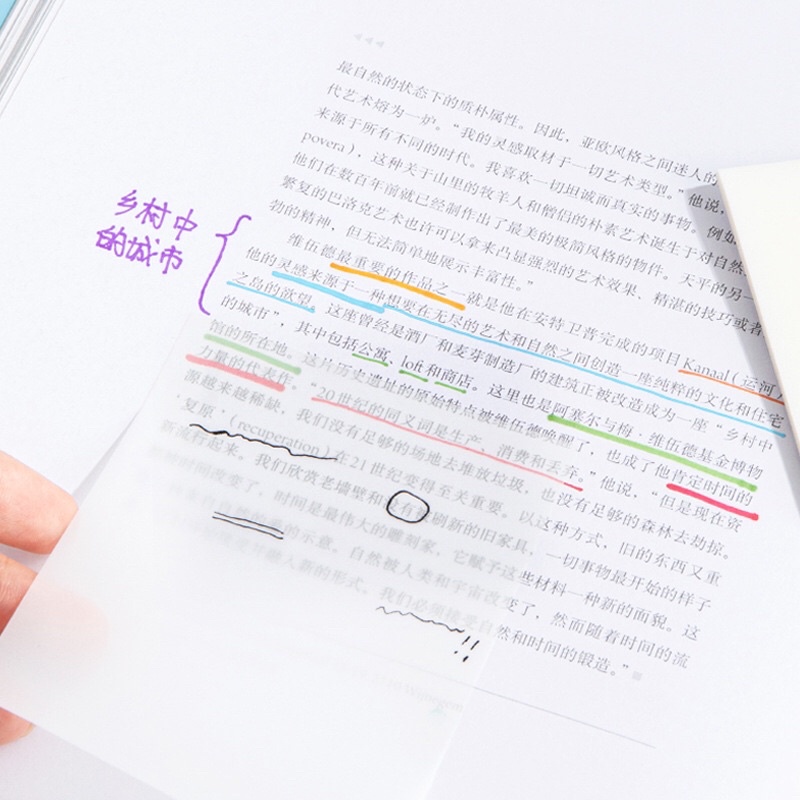 最自然的状态下的质朴属性。因此，亚欧风格之间迷人的
代艺术熔为一炉。“我的灵感取材于一切艺术类型。”他说，
来源于所有不同的时代。我喜欢一切坦诚而真实的事物。例如
povera），这种关于山里的牧羊人和僧侣的朴素艺术诞生于对自然
他们在数百年前就已经制作出了最美的极简风格的物件。天平的另一
繁复的巴洛克艺术也许可以拿来凸显强烈的艺术效果、精湛的技巧或者
勃的精神，但无法简单地展示丰富性。”
乡村中
的城市
维伍德最重要的作品之一就是他在安特卫普完成的项目Kanaal（运河）
他的灵感来源于一种想要在无尽的艺术和自然之间创造一座纯粹的文化和住宅
之岛的欲望。这座曾经是酒厂和麦芽制造厂的建筑正被改造成为一座“乡村中
的城市”，其中包括公寓、loft和商店。这里也是阿塞尔与梅·维伍德基金博物
馆的所在地。这片历史遗址的原始特点被维伍德唤醒了，也成了他肯定时间的
力量的代表作。“20世纪的同义词是生产、消费和丢弃。”他说，“但是现在资
源越来越稀缺，我们没有足够的场地去堆放垃圾，也没有足够的森林去劫掠。
‘复原’（recuperation）在21世纪变得至关重要。以这种方式，旧的东西又重
新流行起来。我们欣赏老墙壁和没有被刷新的旧家具，一切事物最开始的样子
时间改变了，时间是最伟大的雕刻家，它赋予这些材料一种新的面貌。这
的示意。自然被人类和宇宙改变了，然而随着时间的流
人新的形式。我们必须接受自然和时间的锻造。”
!!